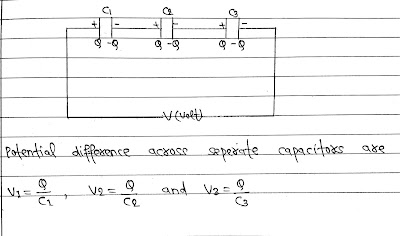 C1 C2 C3
+ - + - + -
Q -Q Q -Q Q -Q
V(volt)
Potential difference across seperate capacitors are
V1 = Q/C1 , V2 = Q/C2 and V3 = Q/C3